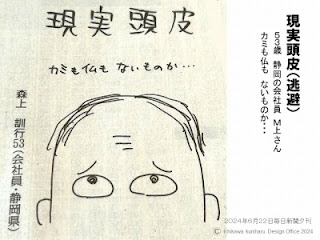 現実頭皮
カミも仏も ないものか…
森上 訓行53(会社員・静岡県)
現実頭皮(逃避)
53歳 静岡の会社員 M上さん
カミも仏も ないものか・・・
2024年6月22日毎日新聞夕刊
©Ichikawa kunharu Design Office 2024